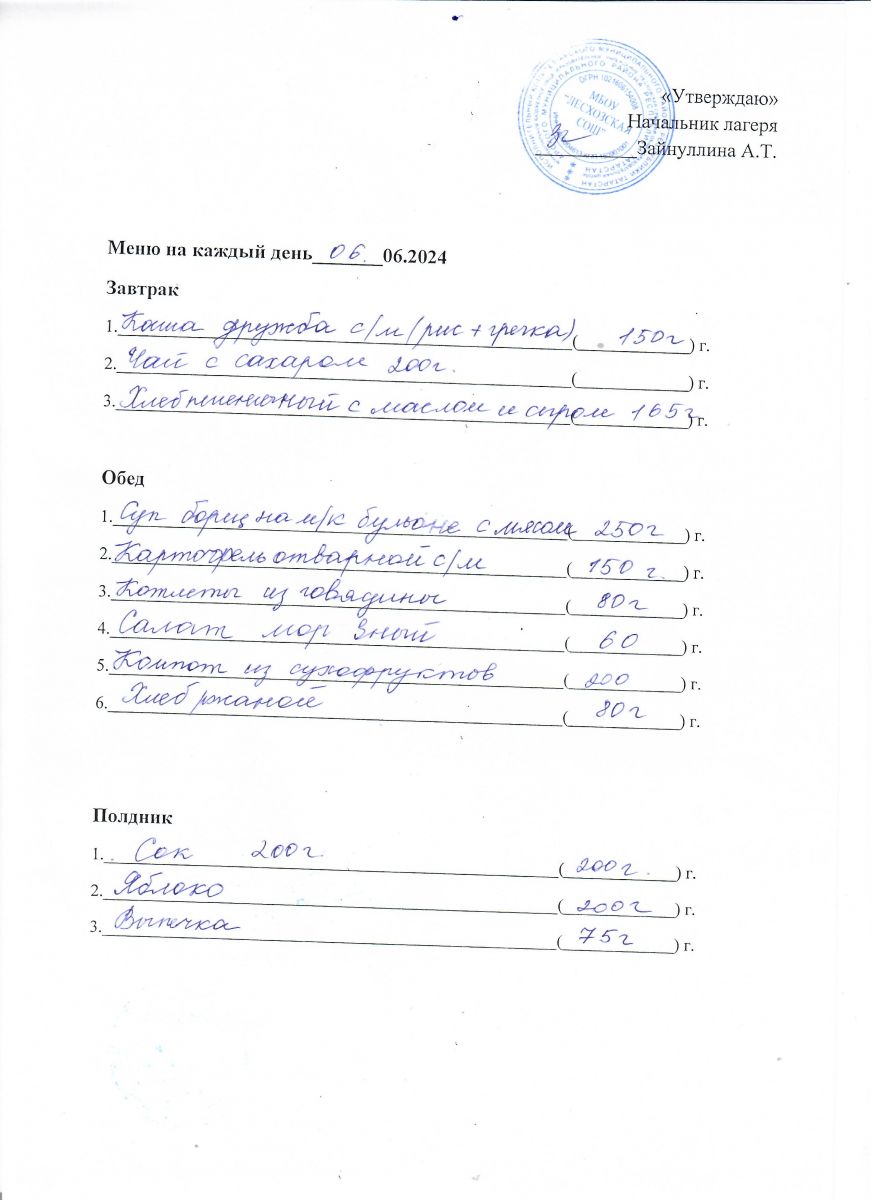 МБОУ
"ЛЕСХОЗСКАЯ
СОШ"
«Утверждаю»
Начальник лагеря
Зайнуллина А.Т.
Меню на каждый день 06. 06.2024
Завтрак
1. Каша дружба с/м (рис + гречка) ( 150г ) г.
2. Чай с сахаром 200г. ( ) г.
3. Хлеб пшеничный с маслом и сыром 165г ) г.
Обед
1. Суп борщ на м/к бульоне с мясом ( 250г ) г.
2. Картофель отварной с/м ( 150 г. ) г.
3. Котлеты из говядины ( 80г ) г.
4. Салат ( 60 ) г.
5. Компот из сухофруктов ( 200 ) г.
6. Хлеб ржаной ( 80г ) г.
Полдник
1. Сок 200г. ( 200г. ) г.
2. Яблоко ( 200г ) г.
3. Выпечка ( 75г ) г.